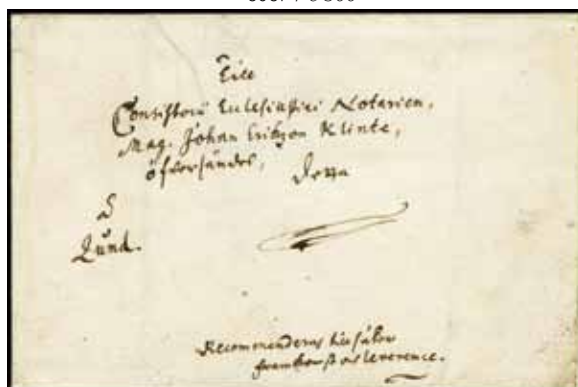 Till
Consistorii Eclesiastici Notarien,
Mag. Johan Erikson Klinte,
öfversändes, detta
à
Lund.
Recommenderas
leverence.